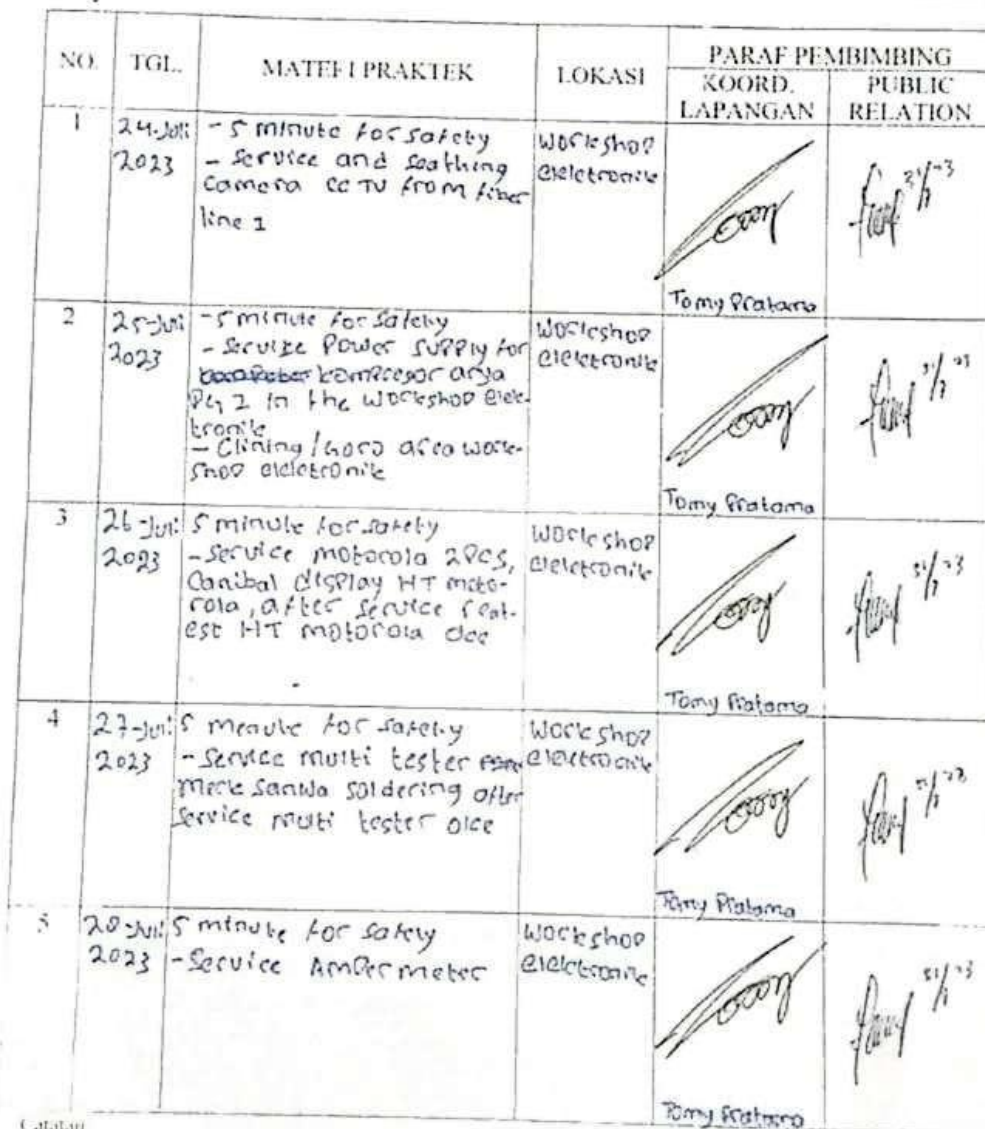 NO. TGL. MATERI PRAKTEK LOKASI PARAF PEMBIMBING
KOORD. LAPANGAN PUBLIC RELATION
1 24-Juli 2023
- 5 minute for safety
- Service and
camera CCTV from fiber
line 1
Workshop
elektronik
Tomy Pratama
31/7-23
2 25-Juli 2023
- 5 minute for safety
- Service Power SUPPly for
kompresor area
in the workshop elek-
tronik
- Clining / area work-
shop elektronik
Workshop
elektronik
Tomy Pratama
31/7-23
3 26-Juli 2023
5 minute for safety
- Service motorola 2PCS,
Canibal display HT moto-
rola, after service reat-
est HT motorola oke
Workshop
elektronik
Tomy Pratama
31/7-23
4 27-Juli 2023
5 menute for safety
- Service multi tester
Merk Sanwa soldering after
service multi tester oke
Workshop
elektronik
Tomy Pratama
31/7-23
5 28-Juli 2023
5 minute for safety
- Service AmPer meter
Workshop
elektronik
Tomy Pratama
31/7-23
Catatan